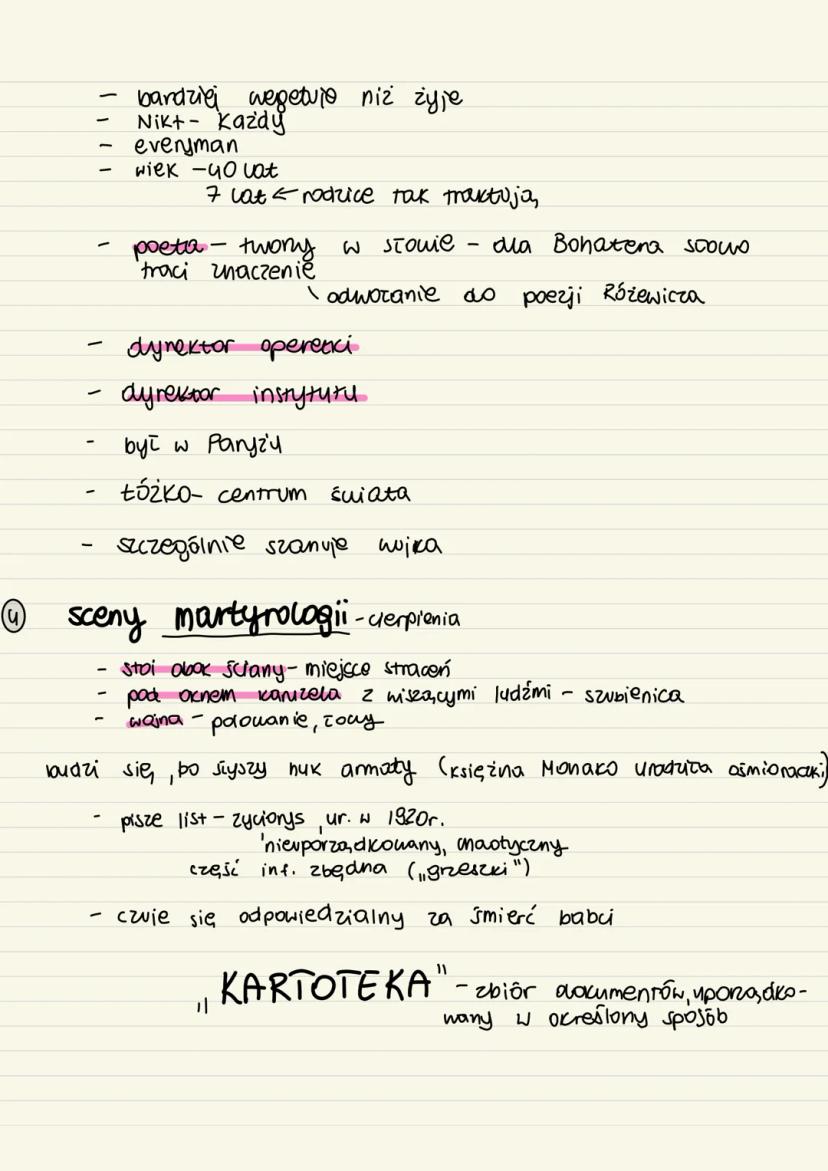 - bardziej wegetuje niż żyje
- Nikt - Każdy
- everyman
- wiek - 40 lat
7 lat ← rodzice tak traktują
- poeta - tworzy w słowie - dla Bohatera słowo
traci znaczenie
\ odwołanie do poezji Różewicza
- dyrektor operetki
- dyrektor instytutu
- był w Paryżu
- ŁÓŻKO - centrum świata
- szczególnie szanuje wujka
④ sceny martyrologii - cierpienia
- stoi obok ściany - miejsce straceń
- pod oknem karuzela z wiszącymi ludźmi - szubienica
- wojna - polowanie, łowy
budzi się, bo słyszy huk armaty (księżna Monako urodziła ośmioraczki)
- pisze list - życiorys, ur. w 1920r.
nieuporządkowany, chaotyczny
część inf. zbędna („grzeszki")
- czuje się odpowiedzialny za śmierć babci
„KARTOTEKA" - zbiór dokumentów, uporządko-
wany w określony sposób